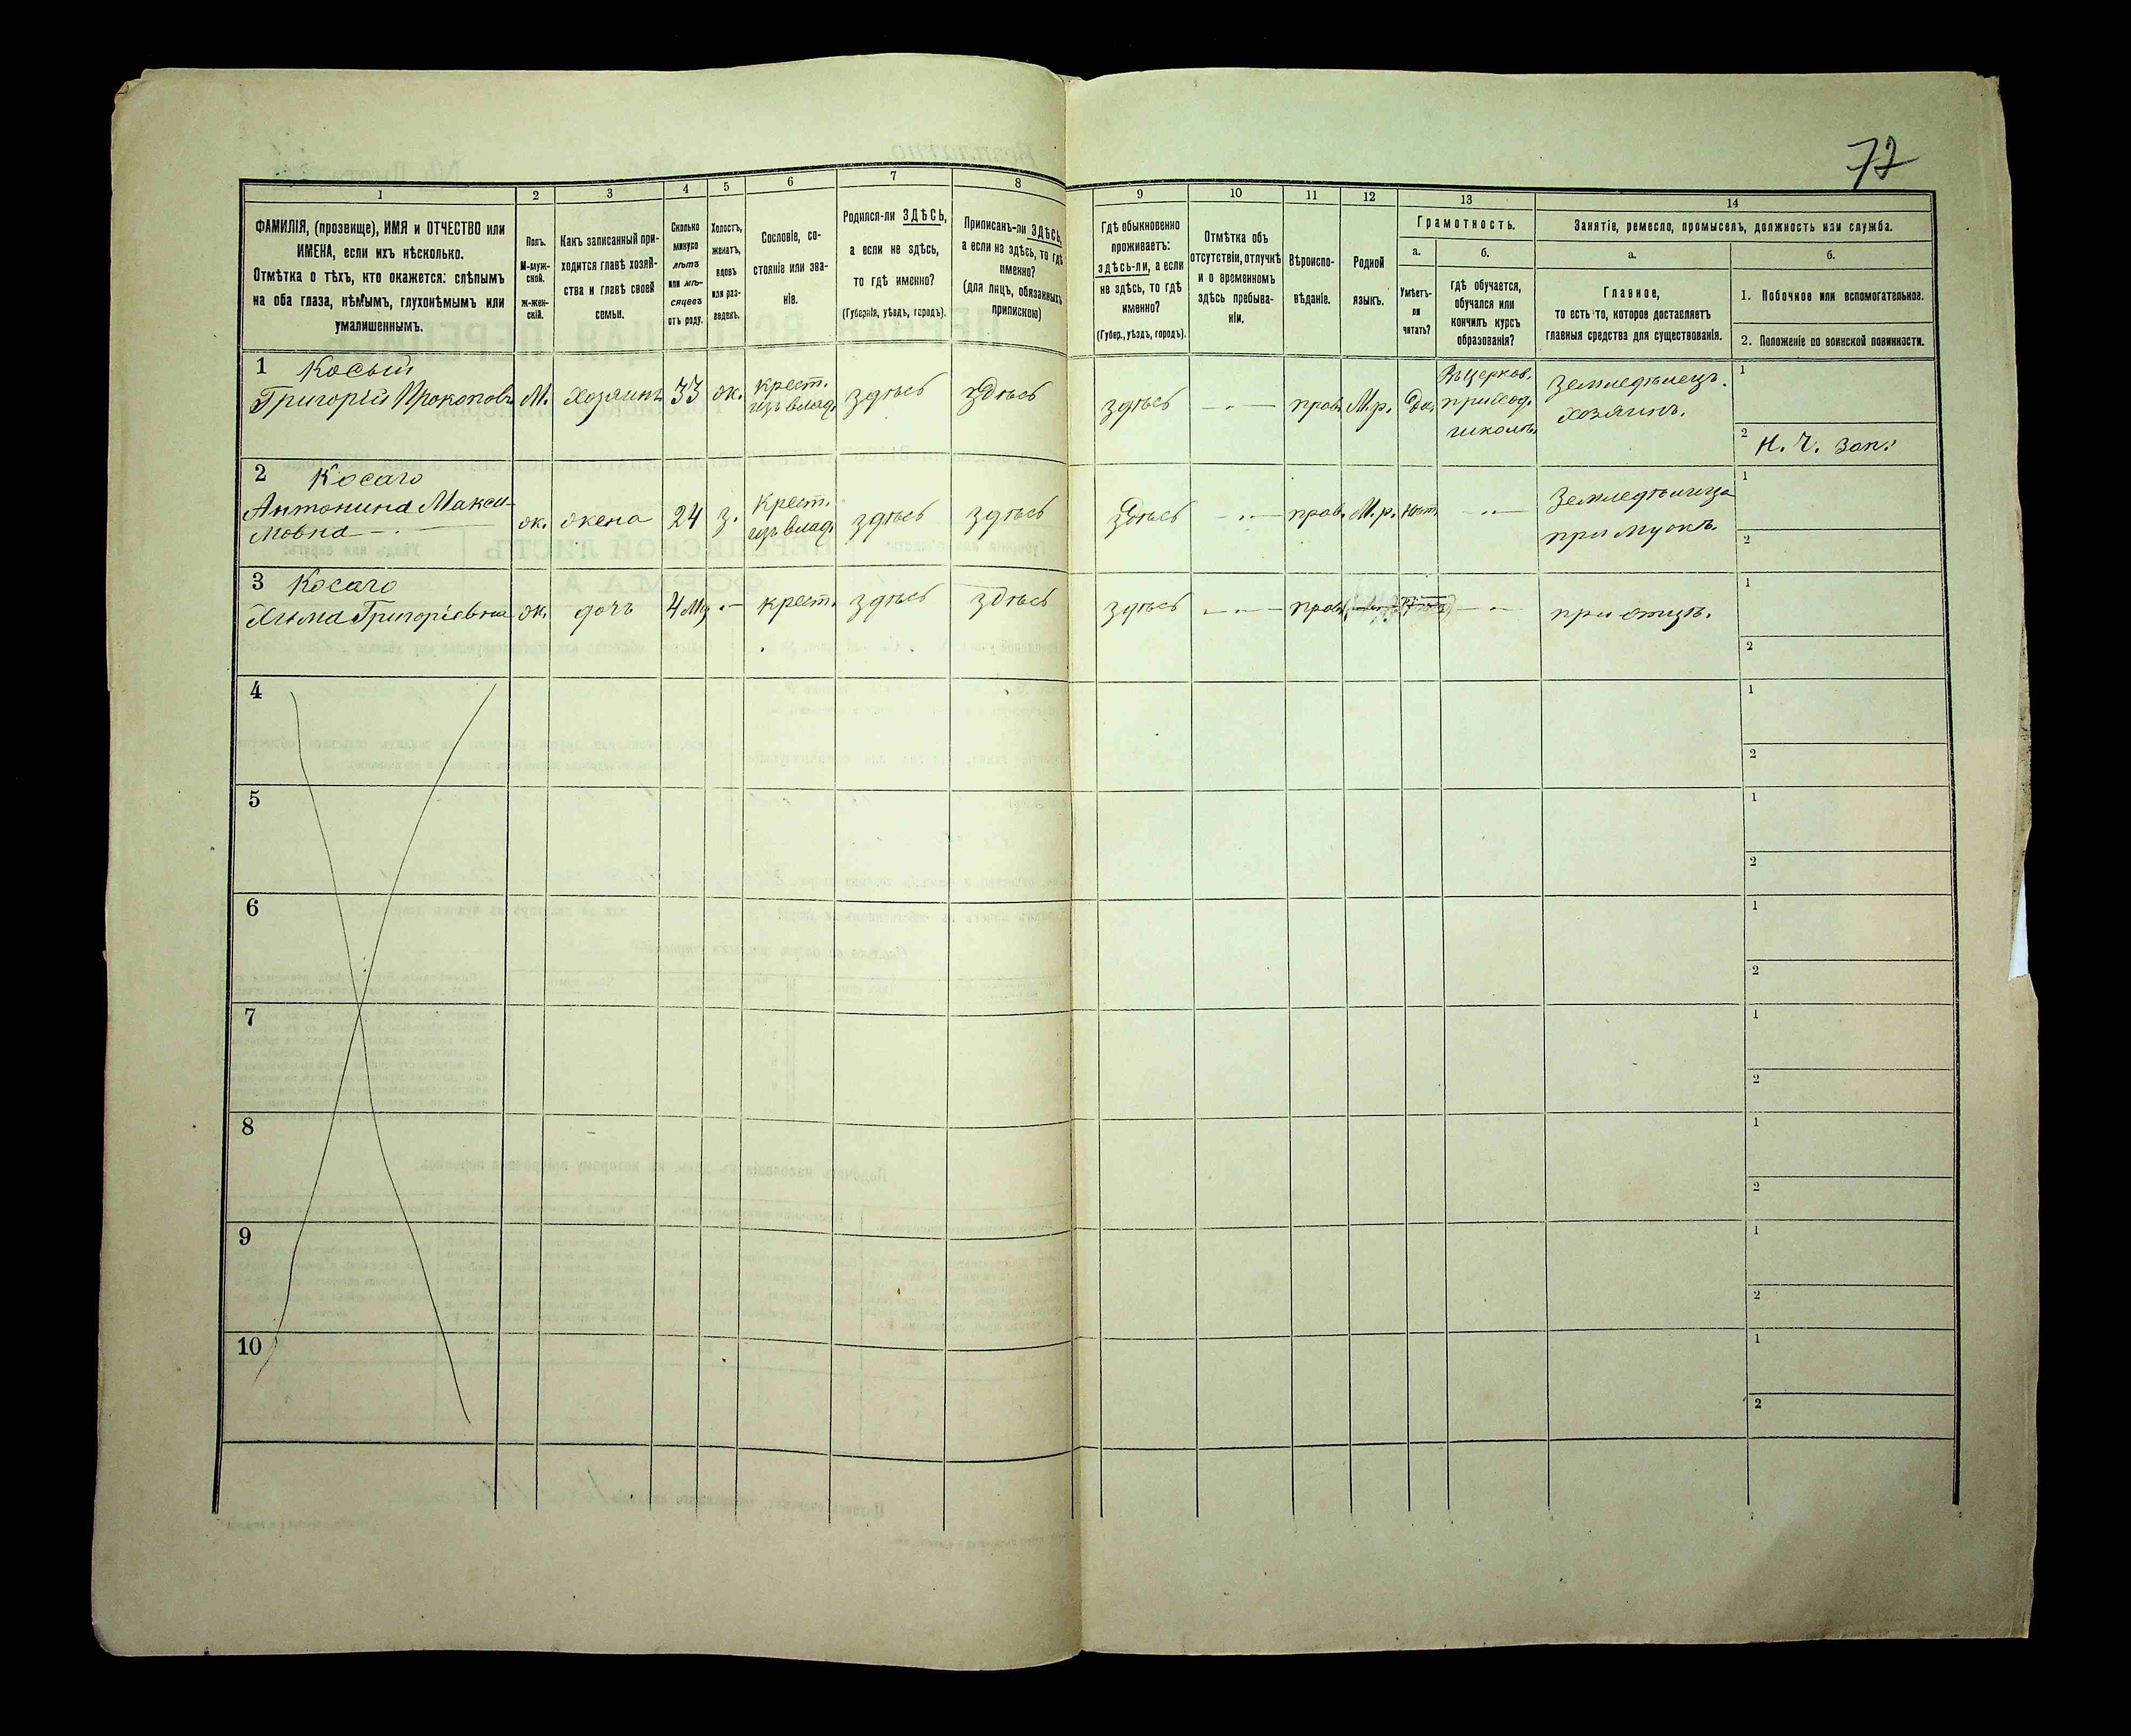 72
1
2
3
4
5
6
7
8
ФАМИЛІЯ, (прозвище), ИМЯ и ОТЧЕСТВО или
ИМЕНА, если ихъ нѣсколько.
Отмѣтка о тѣхъ, кто окажется: слѣпымъ
на оба глаза, нѣмымъ, глухонѣмымъ или
умалишеннымъ.
Полъ.
М-муж-
ской.
Ж-жен-
скій.
Какъ записанный при-
ходится главѣ хозяй-
ства и главѣ своей
семьи.
Сколько
минуло
лѣтъ
или мѣ-
сяцевъ
отъ роду.
Холостъ,
женатъ,
вдовъ
или раз-
веденъ.
Сословіе, со-
стояніе или зва-
ніе.
Родился-ли ЗДѢСЬ,
а если не здѣсь,
то гдѣ именно?
(Губернія, уѣздъ, городъ).
Приписанъ-ли ЗДѢСЬ,
а если не здѣсь, то гдѣ
именно?
(для лицъ, обязанныхъ
припискою)
9
10
11
12
13
14
Гдѣ обыкновенно
проживаетъ:
здѣсь-ли, а если
не здѣсь, то гдѣ
именно?
(Губер., уѣздъ, городъ).
Отмѣтка объ
отсутствіи, отлучкѣ
и о временномъ
здѣсь пребыва-
ніи.
Вѣроиспо-
вѣданіе.
Родной
языкъ.
Грамотность.
а.
Умѣетъ-
ли
читать?
б.
Гдѣ обучается,
обучался или
кончилъ курсъ
образованія?
Занятіе, ремесло, промыселъ, должность или служба.
а.
Главное,
то есть то, которое доставляетъ
главныя средства для существованія.
б.
1. Побочное или вспомогательное.
2. Положеніе по воинской повинности.
1 Косый
Григорій Прокоповъ М. Хозяинъ 33 ж. крест. изъ влад. здѣсь здѣсь
здѣсь — " — прав. М.р. да Въ церков. приход. школѣ Земледѣлецъ. хозяинъ.
1
2 Н. Ч. Зап.
2 Косаго
Антонина Макси-
мовна — ж. жена 24 з. крест. изъ влад. здѣсь здѣсь
здѣсь — " — прав. М.р. нѣт. — " — Земледѣлица при мужѣ.
1
2
3 Косаго
Хима Григоріевна ж. дочь 4 мц — крест. здѣсь здѣсь
здѣсь — " — прав. — " — при отцѣ.
1
2
4
1
2
5
1
2
6
1
2
7
1
2
8
1
2
9
1
2
10
1
2